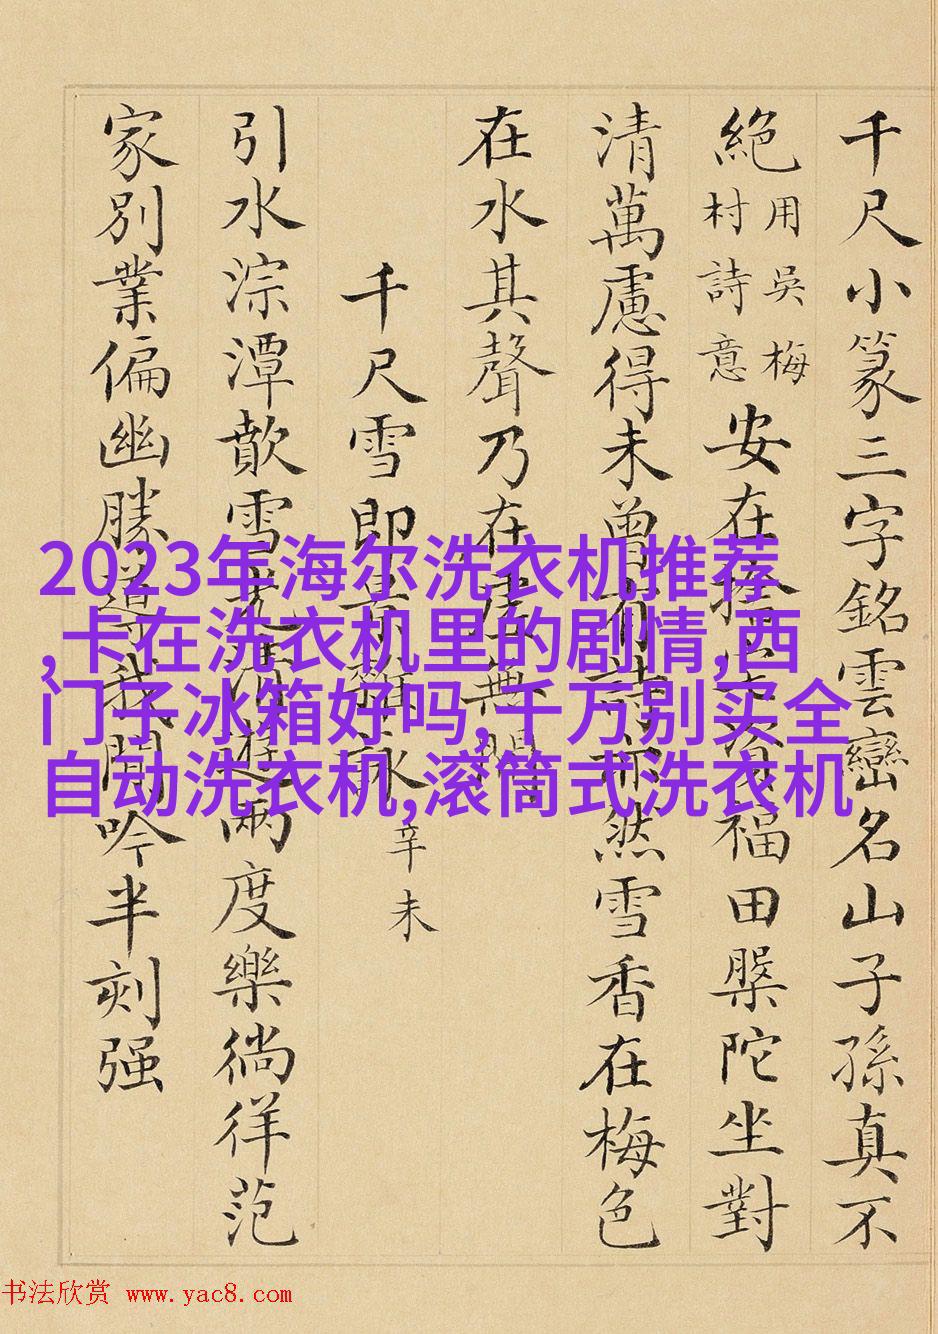 千尺小篆三字銘雲巒名山子孫真不
絶
用吳梅
村詩意
安在福田槃陀坐對
清萬慮得未曾有詩然雪香在梅色
在水其聲乃在虛無間
千尺雪即景雜詠
辛未
引水淙潭歕雪清遊兩度樂徜徉范
家別業偏幽勝導我閒吟半刻强
2023年海尔洗衣机推荐
,卡在洗衣机里的剧情,西
门子冰箱好吗,千万别买全
自动洗衣机,滚筒式洗衣机
书法欣赏 www.yac8.com